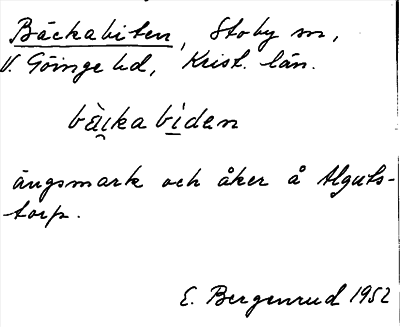 Bäckabiten, Stoby sn,
V. Göinge hd, Krist. län.
bài̯kabi̲dan
ängsmark och åker å Alguts-
torp.
E. Bergenrud 1952